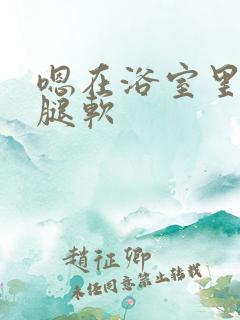 嗯在浴室里
腿软
趙征卿
未任同意禁止转载